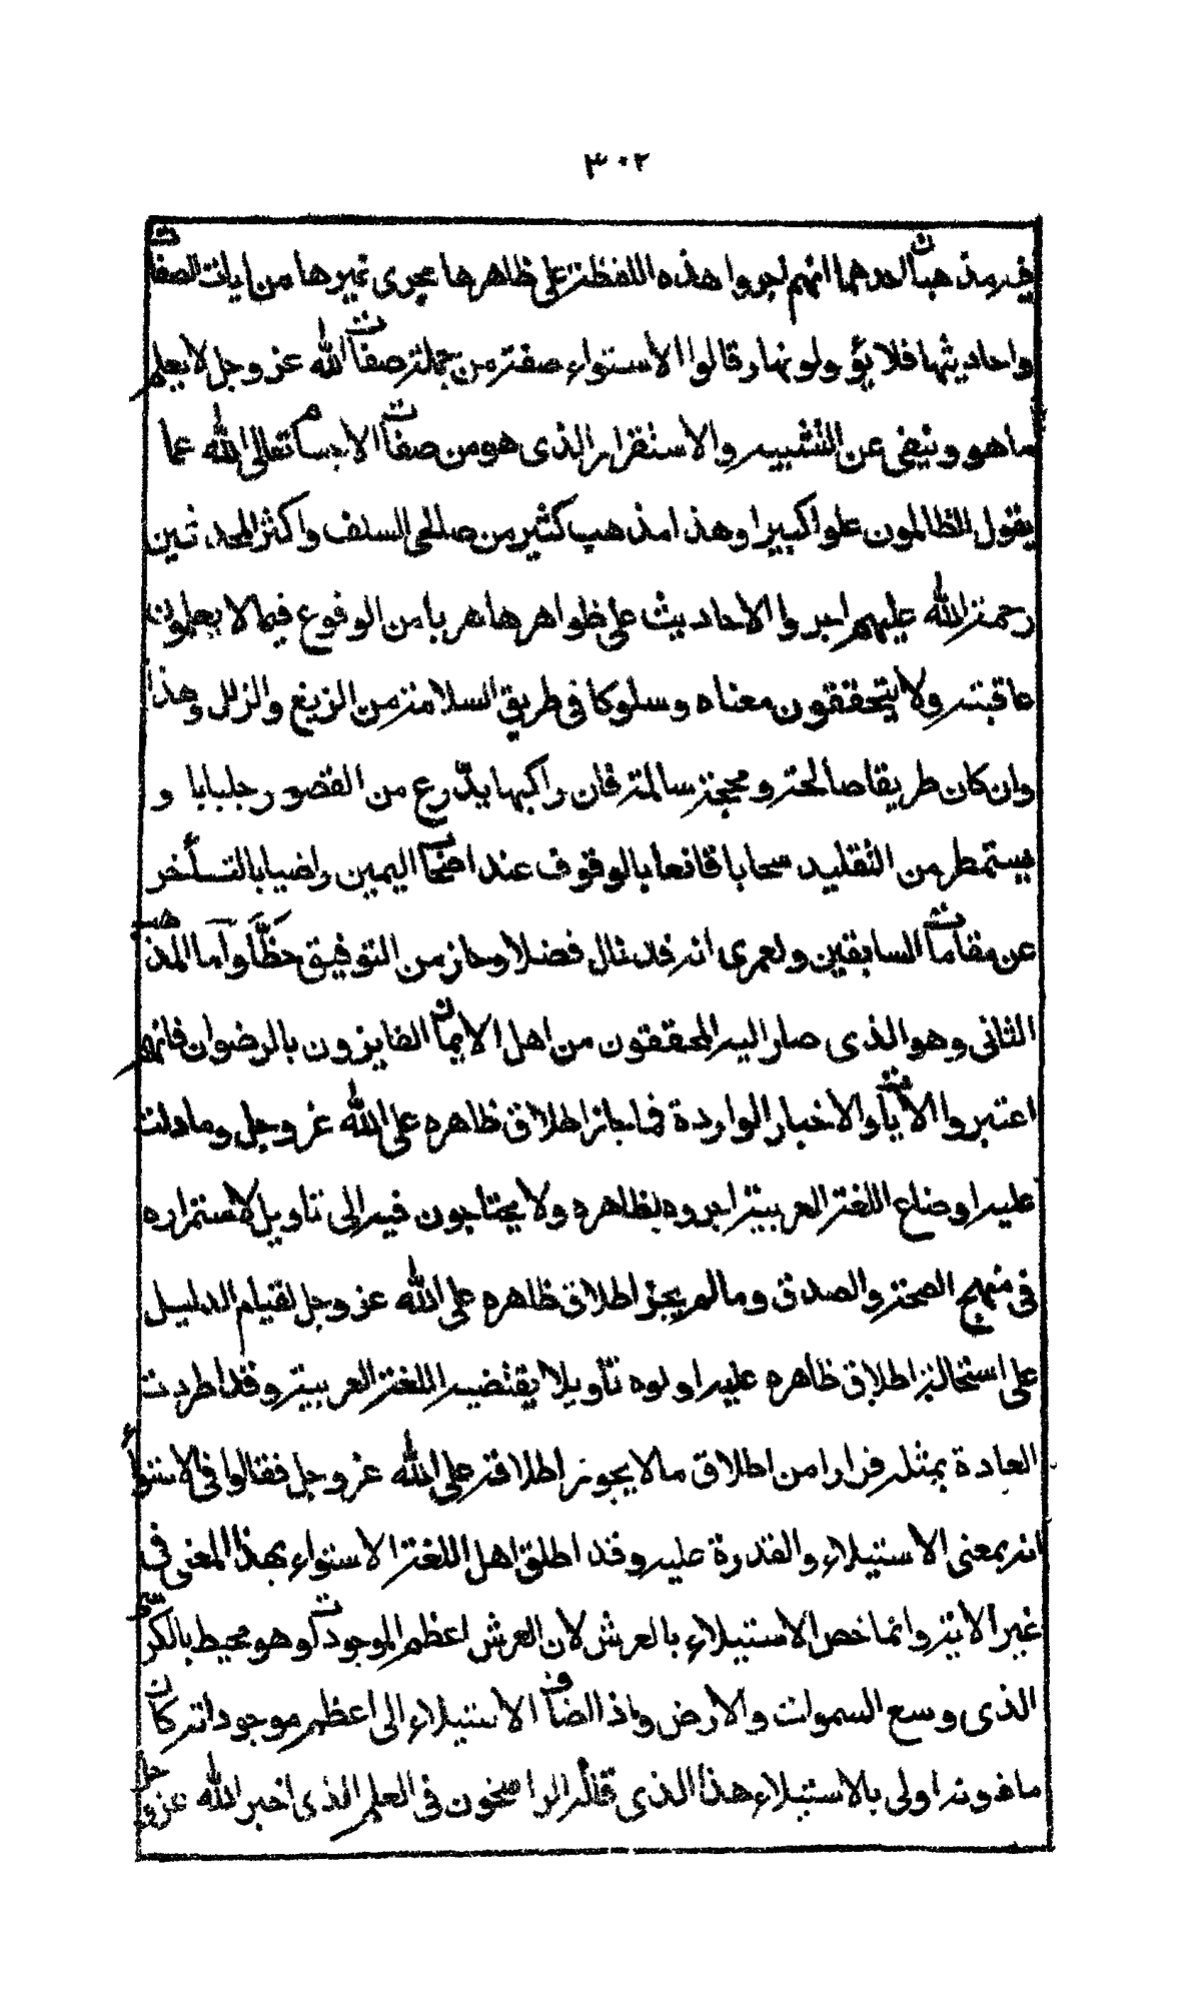 ٣٠٢
فيه مذهبان احدهما انهم اجروا هذه اللفظة على ظاهرها مجرى غيرها من ايات الصفات
واحاديثها فلا يؤولونها وقالوا الاستواء صفة من جملة صفات الله عز وجل لا يعلم
ما هو وينفى عن التشبيه والاستقرار الذى هو من صفات الاجسام تعالى الله عما
يقول الظالمون علوا كبيرا وهذا مذهب كثير من صالحى السلف واكثر المحدثين
رحمة الله عليهم اجروا الاحاديث على ظواهرها هربا من الوقوع فيما لا يعلمون
عاقبته ولا يتحققون معناه وسلوكا فى طريق السلامة من الزيغ والزلل وهذا
وان كان طريقا صالحة ومحجة سالمة فان راكبها يدّرع من القصور جلبابا و
يستمطر من التقليد سحابا قانعا بالوقوف عند اضحاب اليمين راضيا بالتأخر
عن مقامات السابقين ولعمرى انه قد نال فضلا وحاز من التوفيق حظّا وأما المذهب
الثانى وهو الذى صار اليه المحققون من اهل الايمان الفايزون بالرضوان فانهم
اعتبروا الايات والاخبار الواردة فما جاز اطلاق ظاهره على الله عز وجل وما دلت
عليه اوضاع اللغة العربية اجروه بظاهره ولا يحتاجون فيه الى تاويل لاستمراره
فى منهج الصحة والصدق وما لم يجز اطلاق ظاهره على الله عز وجل لقيام الدليل
على استحالة اطلاق ظاهره عليه اولوه تأويلا يقتضيه اللغة العربية وقد اطردت
العادة بمثله فرارا من اطلاق ما لا يجوز اطلاقه على الله عز وجل فقالوا فى الاستواء
انه بمعنى الاستيلاء والقدرة عليه وقد اطلق اهل اللغة الاستواء بهذا المعنى فى
غير الاية وانما خص الاستيلاء بالعرش لان العرش اعظم الموجودات وهو محيط بالكرسى
الذى وسع السموات والارض واذا انضاف الاستيلاء الى اعظم موجوداته كان
ما دونه اولى بالاستيلاء هذا الذى قاله الراسخون فى العلم الذى اخبر الله عز وجل